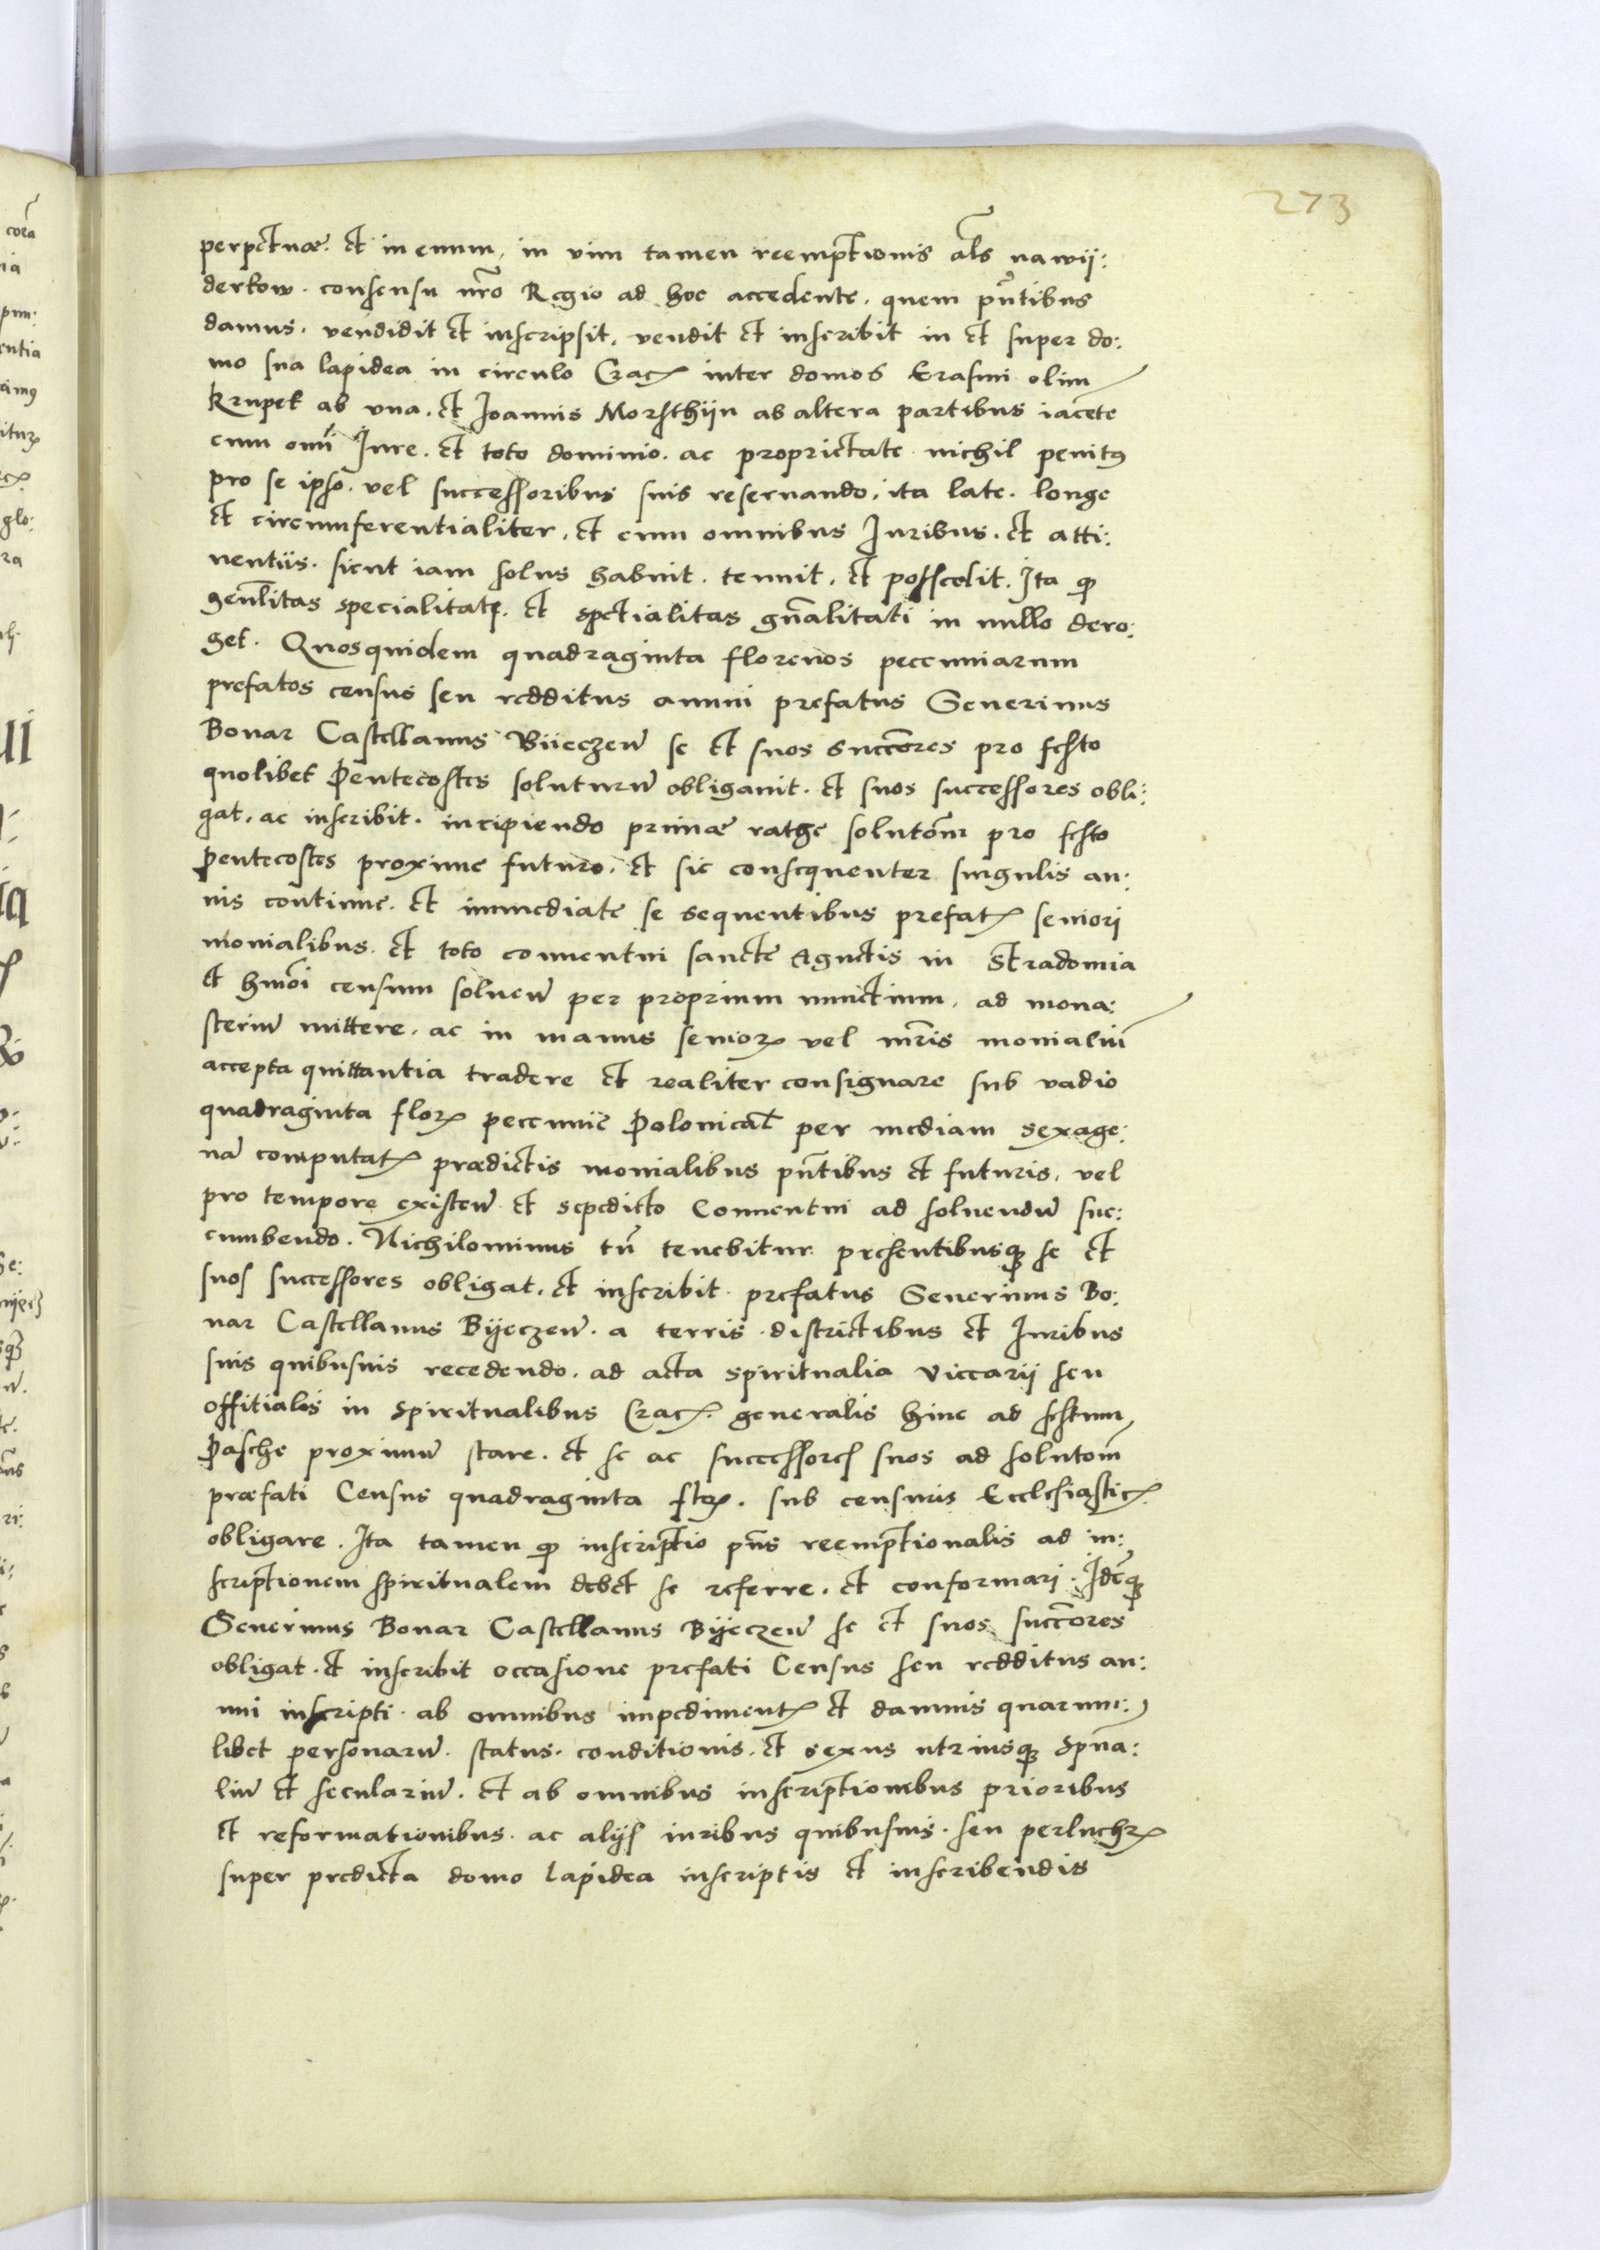 273
perpetuæ. et in euum, in vim tamen reemptionis als nawij:
derkow. consensu nro Regio ad hoc accedente, quem pntibus
damus, vendidit et inscripsit, vendit et inscribit in et super do:
mo sua lapidea in circulo Crac inter domos Erasmi olim
Krupek ab vna, et Joannis Morsthijn ab altera partibus iacete
cum omi Jure. et toto dominio. ac proprietate nichil penitus
pro se ipso. vel successoribus suis reseruando, ita late. longe
et circumferentialiter, et cum omnibus Juribus. et atti:
nentiis. sicut iam solus habuit. tenuit, et possedit. Ita qp
genlitas specialitati. et spetialitas gnalitati in nullo dero:
get. Quosquidem quadraginta florenos peccuniarum
prefatos census seu redditus annui prefatus Seuerinus
Bonar Castellanus Biieczen se et suos succores pro festo
quolibet Pentecostes soluturu obligauit. et suos successores obli:
gat, ac inscribit. incipiendo primæ rathe solutom pro festo
Pentecostes proxime futuro. et sic consequenter singulis an:
nis continue. et immediate se sequentibus prefat seniori
monialibus. et toto conuentui sancte Agnetis in Stradomia
et hmoi censum soluen per proprium nunctium, ad mona:
steriu mittere. ac in manus senior vel mris monialiu
accepta quittantia tradere et realiter consignare sub vadio
quadraginta flor peccunie Polonical per mediam sexage:
na computat prædictis monialibus pntibus et futuris, vel
pro tempore existen et sepedicto Conuentui ad soluendu suc:
cumbendo. Nichilominus tn tenebitur presentibusq se et
suos successores obligat, et inscribit prefatus Seuerinus Bo:
nar Castellanus Bijeczen. a terris. districtibus et Juribus
suis quibusuis recedendo. ad acta spiritualia viccarij seu
offitialis in spiritualibus Crac. generalis hinc ad festum
Pasche proximu stare. et se ac successores suos ad solutom
præfati Census quadraginta flor. sub censuris Ecclesiastic
obligare. Ita tamen qp inscriptio pns reemptionalis ad in:
scriptionem spiritualem debet se referre. et conformari. Ideq
Seuerinus Bonar Castellanus Bijeczen se et suos succores
obligat. et inscribit occasione prefati Census seu redditus an:
nui inscripti ab omnibus impediment et damnis quarum:
libet personaru. status. conditionis. et sexus utriusq spua:
liu et seculariu. et ab omnibus inscriptionibus prioribus
et reformationibus. ac alijs iuribus quibusuis. seu perluchr
super predicta domo lapidea inscriptis et inscribendis